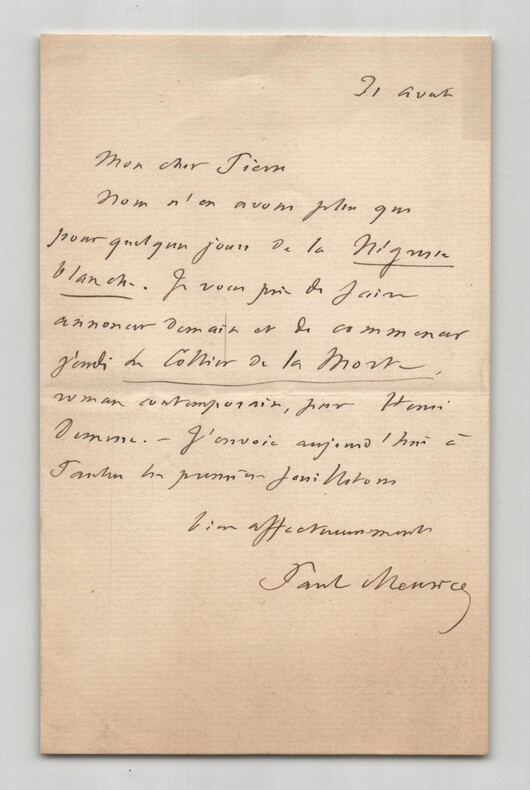 31 août
Mon cher Pierre
Nous n'en avons plus que
pour quelques jours de la Négresse
blanche. Je vous prie de faire
annoncer demain et de commencer
jeudi Le Collier de la Morte,
roman contemporain, par Henri
Demesse. – J'envoie aujourd'hui à
les premiers feuilletons
bien affectueusement
Paul Meurice